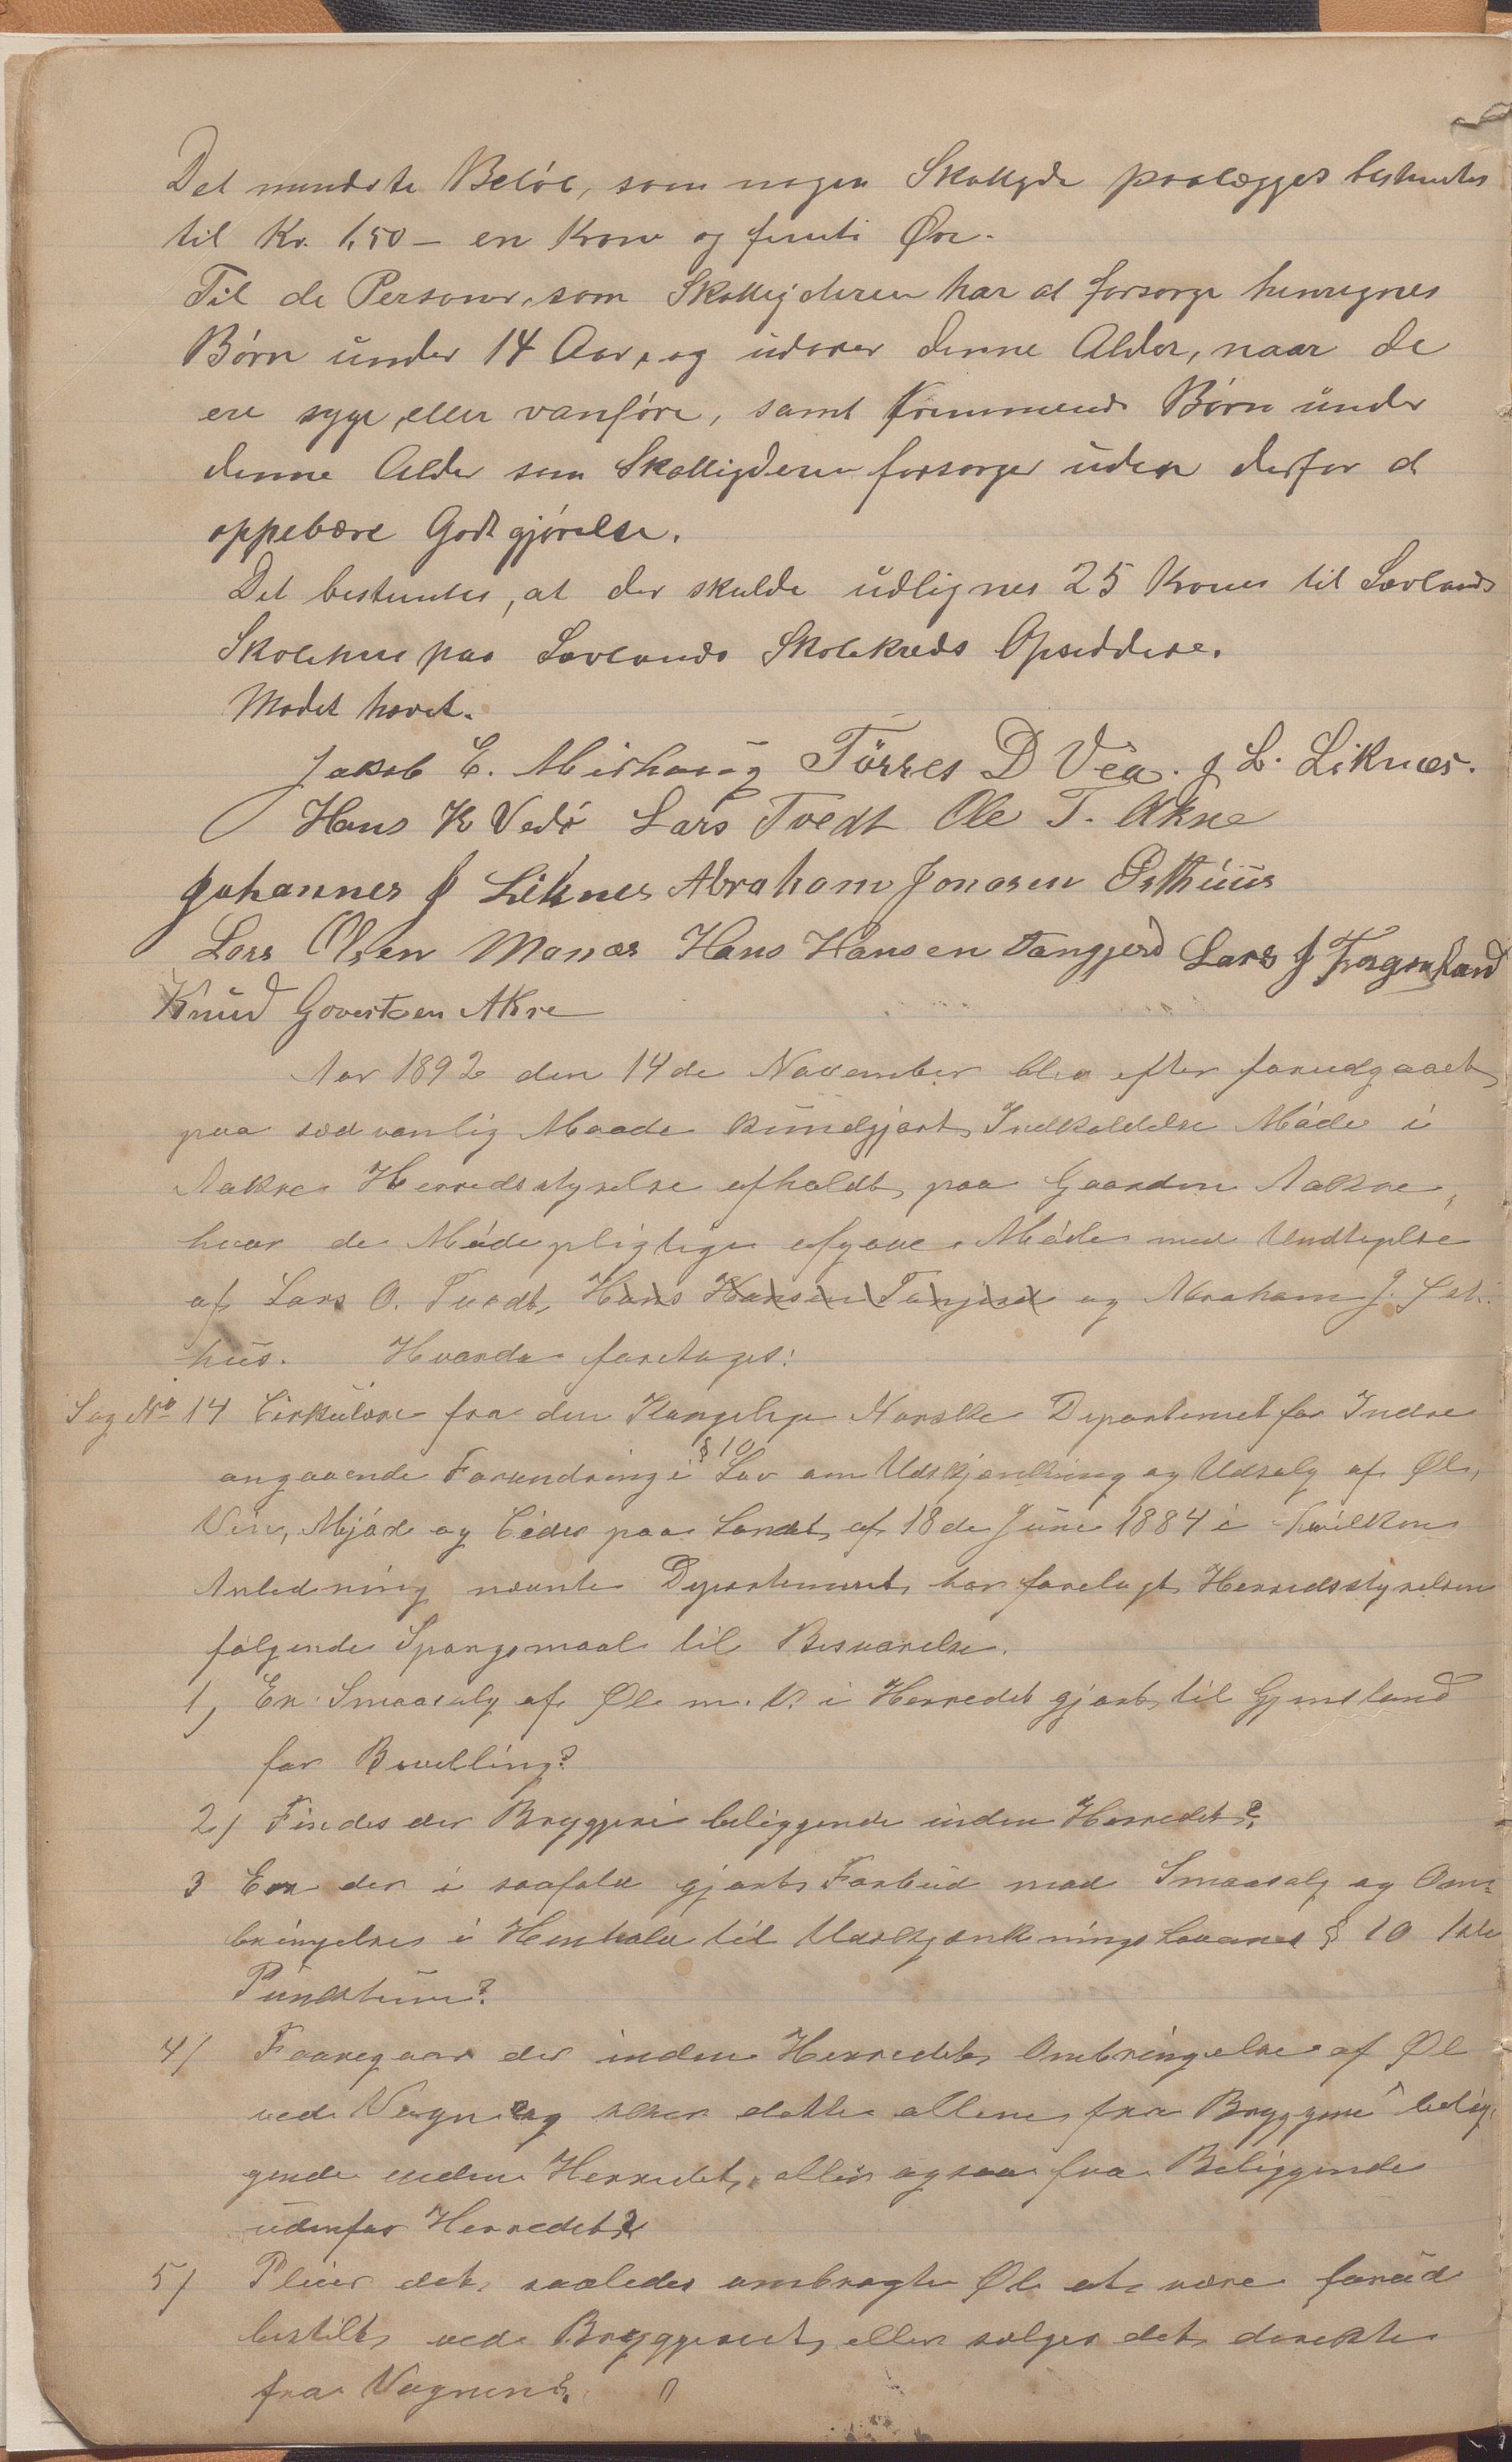 Det mindste Beløb, som nogen Skatyder paalægges bestemtes
til Kr. 1,50 – en Krone og femti Øre.
Til de Personer, som Skatteyderen har at forsørge henregnes
Børn under 14 Aar, og udover denne Alder, naar de
ere syge eller vanføre, samt fremmende Børn under
denne Alder som Skatteyderen forsørger uden derfor at
oppebære Godtgjørelse.
Det bestemtes, at der skulde udlignes 25 Kroner til Sævlands
Skolehus paa Sævlands Skolekreds Opsiddere.
Mødet hævet.
Jakob E. Mirhaug Törres D Vea. J L. Liknes.
Hans K Vedø Lars Tvedt Ole T. Akre
Johannes J Liknes Abraham Jonasen Østhuus
Lars Olsen Manæs Hans Hansen Tangjerd Lars J
Knud Govertsen Akre
Aar 1892 den 14de November blev efter forudgaaet
paa sædvanlig Maade kundgjort Indkaldelse Møde i
Aakre Herredsstyrelse afholdt paa Gaarden Aakre,
hvor de Mødepligtige afgave Møde med Undtagelse
af Lars O. Tvedt, Hans Hansen Tangjerd og Abraham J. Øst-
hus. Hvorda foretages:
Sag No 14 Cirkulære fra den Kongelige Norske Departemet for Indre
angaaende Forandring i § 10 Lov om Udskjænkning og Udsalg af Øl,
Vin, Mjød og Cider paa Landet af 18de Juni 1884 i hvilken
Anledning nævnte Departement har forelagt Herredsstyrelsen
følgende Spørgsmaal til Besvarelse.
1) Er Smaasalg af Øl m. V. i Herredet gjort til Gjenstand
for Bevilling?
2) Findes der Bryggeri beliggende inden Herredet?
3 Er der i saafald gjort Forbud mod Smaasalg og Om-
bringelse i Henhold til Udskjænkningslovens § 10 1ste
Punktum?
4) Foregaar der inden Herredet Ombringelse af Øl
ved Vogn og sker dette allene fra Bryggeri belig-
gende inden Herredet, eller ogsaa fra Beliggende
udenfor Herredet?
5) Pleier det saaledes ombragte Øl at være forud
bestilt ved Bryggeriet eller sælges det direkte
fra Vognen?